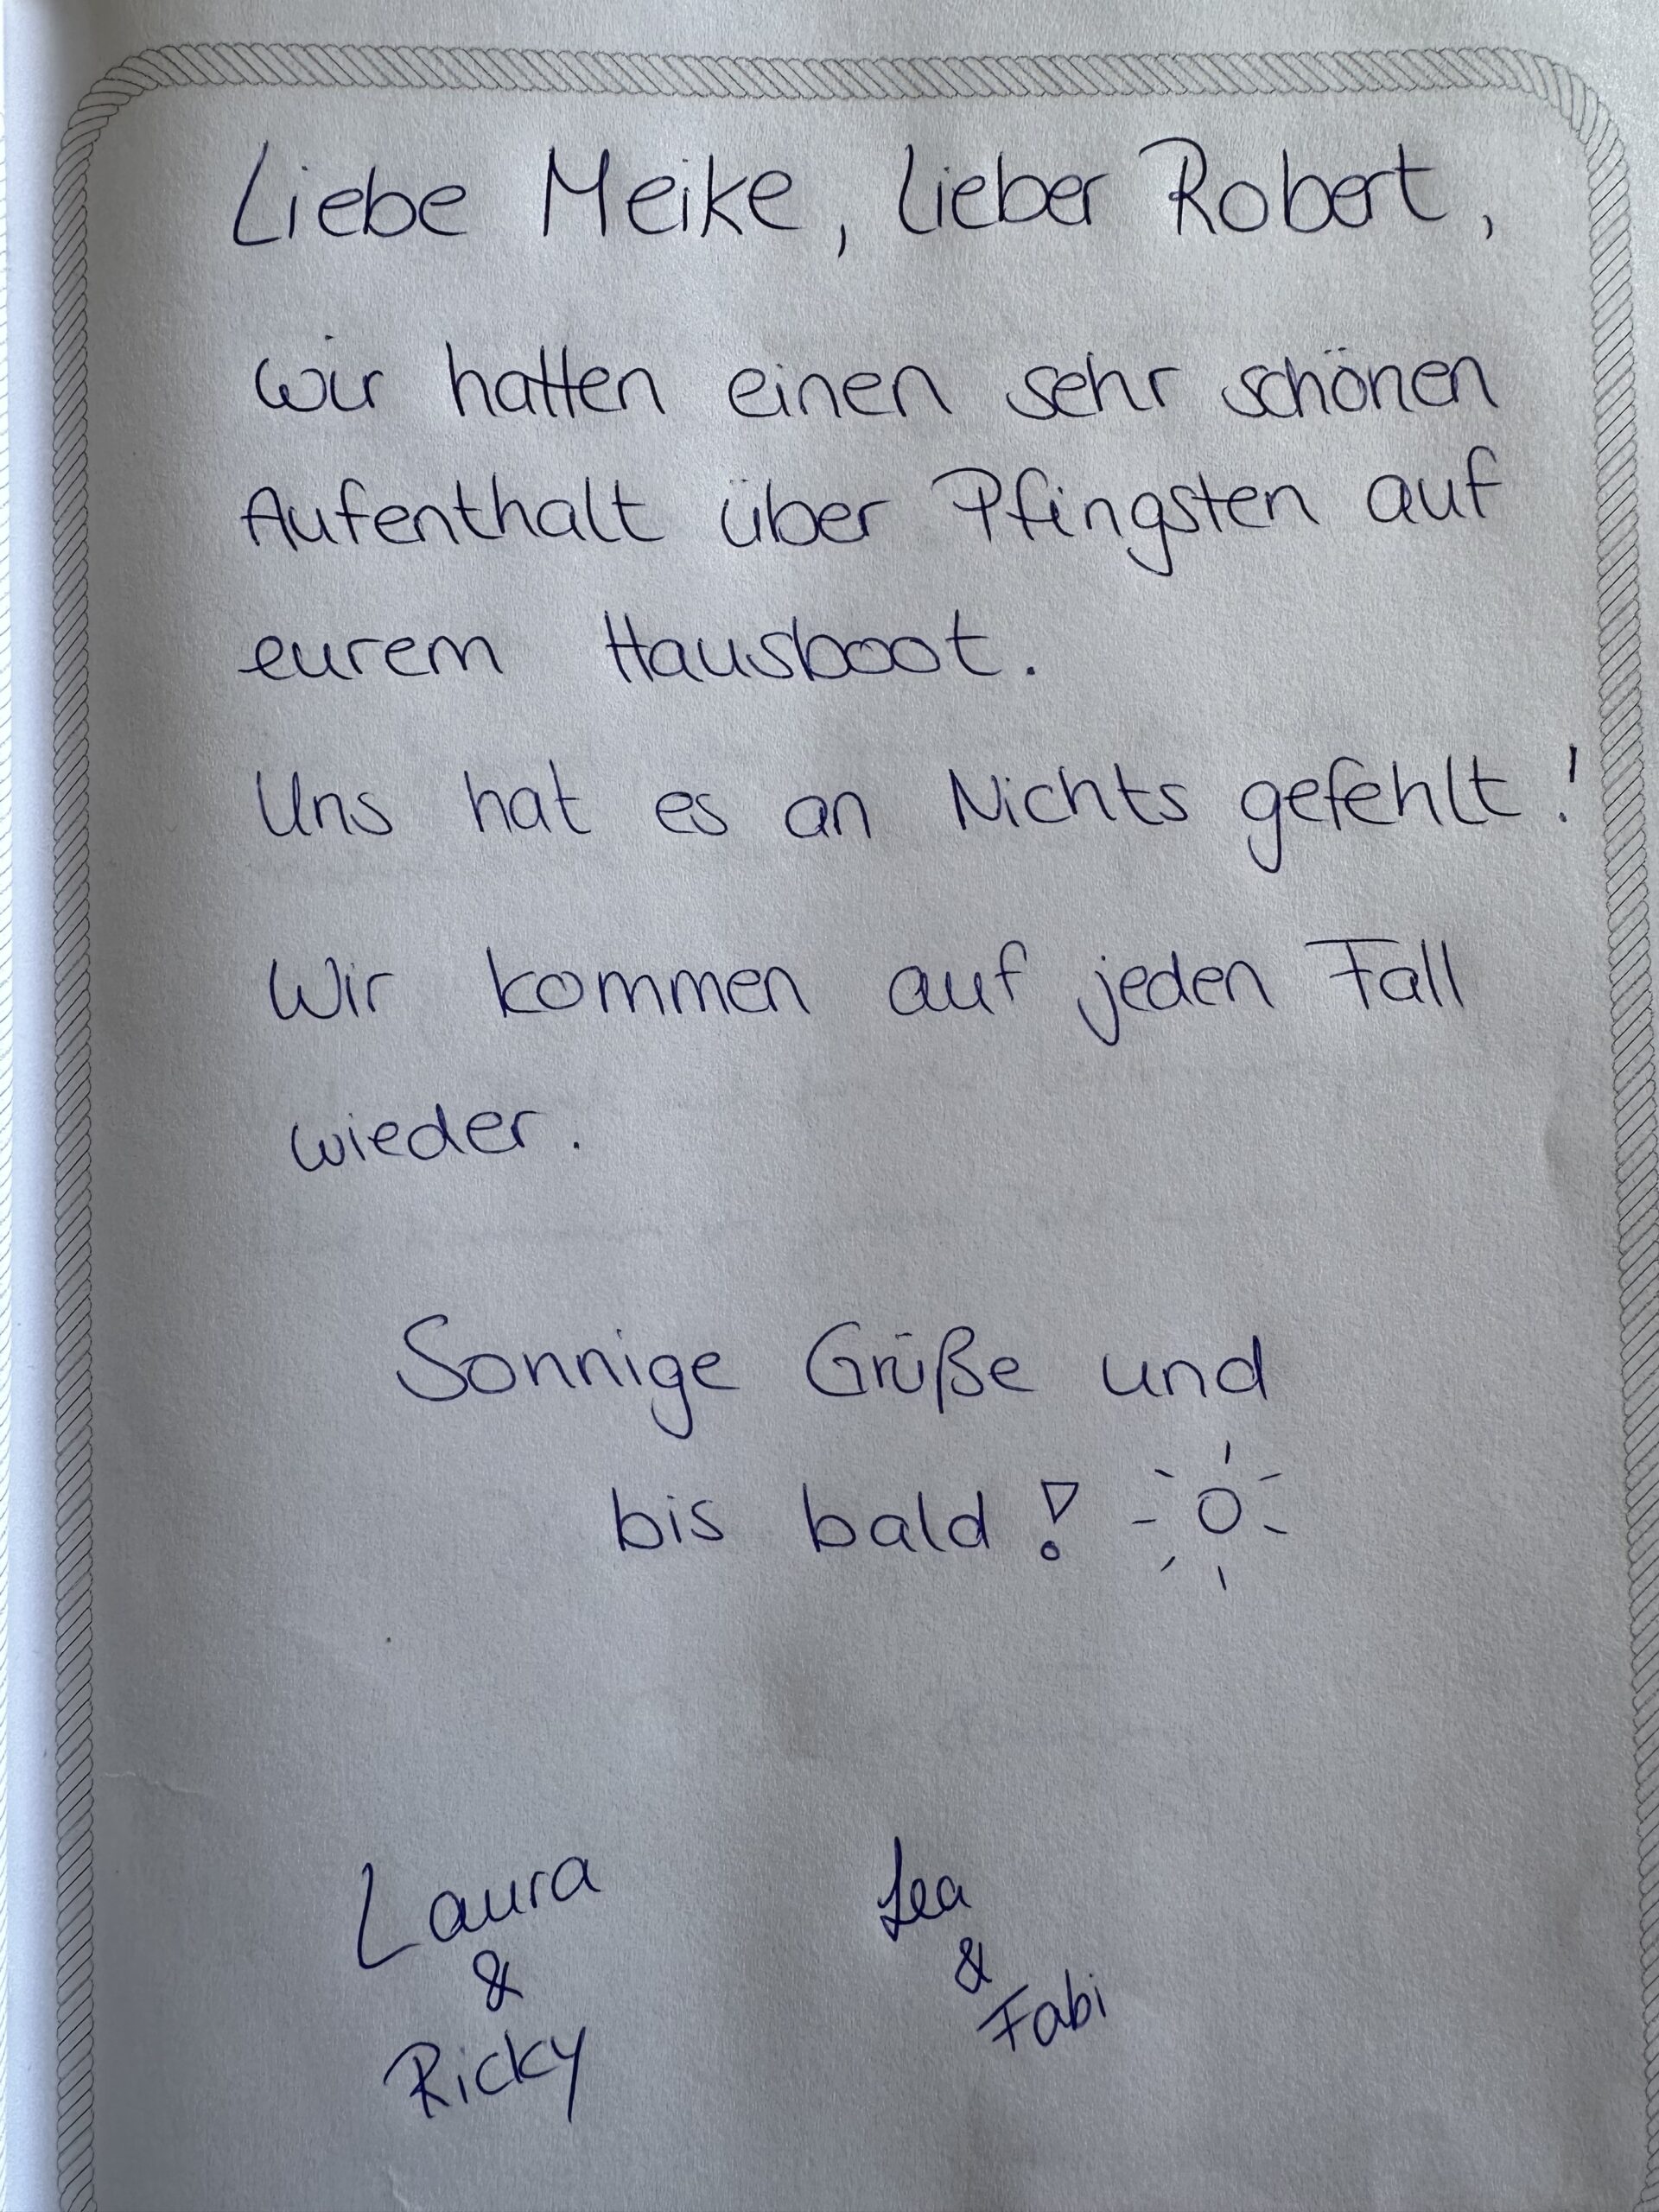 Liebe Meike, lieber Robert,
wir hatten einen sehr schönen
Aufenthalt über Pfingsten auf
eurem Hausboot.
Uns hat es an Nichts gefehlt!
Wir kommen auf jeden Fall
wieder.
Sonnige Grüße und
bis bald!
Laura
&
Ricky
Lea
&
Fabi